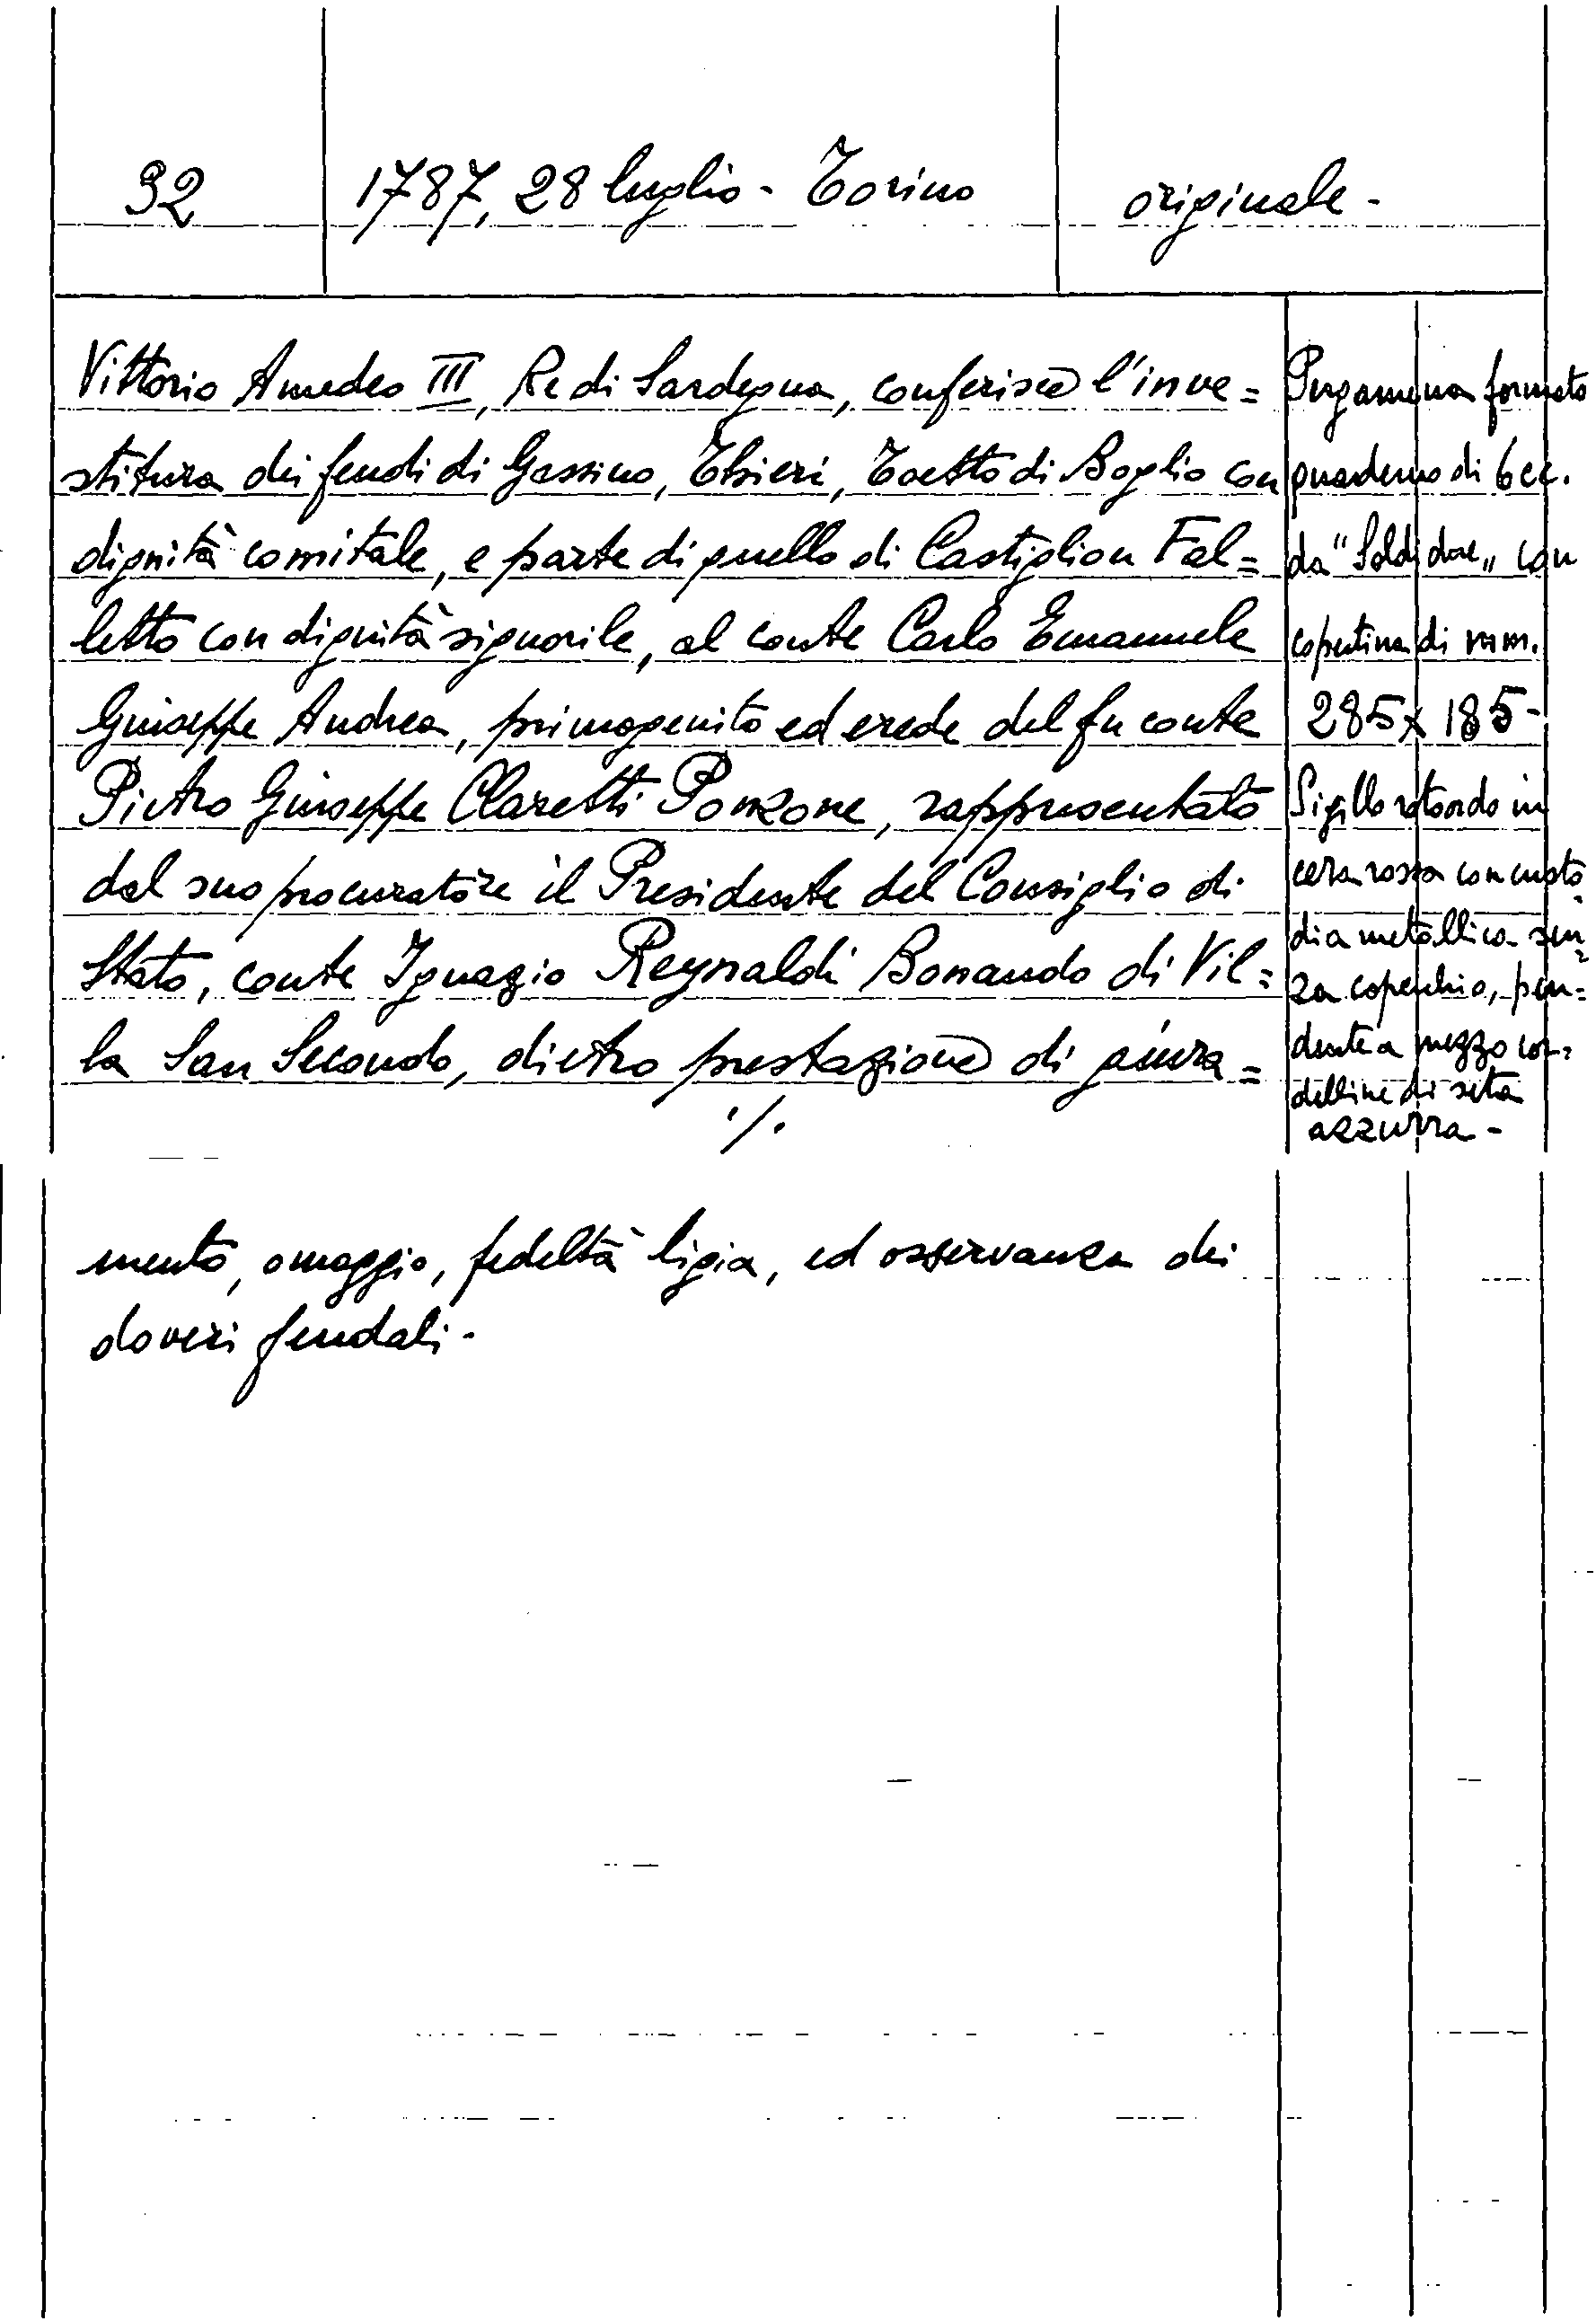 92
1787, 28 luglio - Torino
originale -
Vittorio Amedeo III, Re di Sardegna, conferisce l'inve=
stitura dei feudi di Gassino, Tetto di Boglio con
dignità comitale, e parte di quello di Castiglion Fal=
letto con dignità signorile, al conte Carlo Emanuele
Giuseppe Andrea, primogenito ed erede del fu conte
Pietro Giuseppe Claretti Ponzone, rappresentato
dal suo procuratore il Presidente del Consiglio di
Stato, conte Ignazio Reynaldi Bonaudo di Vil=
la San Secondo, dietro prestazione di giura=
./.
Pergamena formato
quaderno di 6 cc.
da "Soldi due" con
copertina di mm.
285 x 185 -
Sigillo rotondo in
cera rossa con custo=
dia metallica sen=
za coperchio, pen=
dente a mezzo cor=
delline di seta
azzurra -
mento, omaggio, fedeltà ligia, ed osservanza dei
doveri feudali -